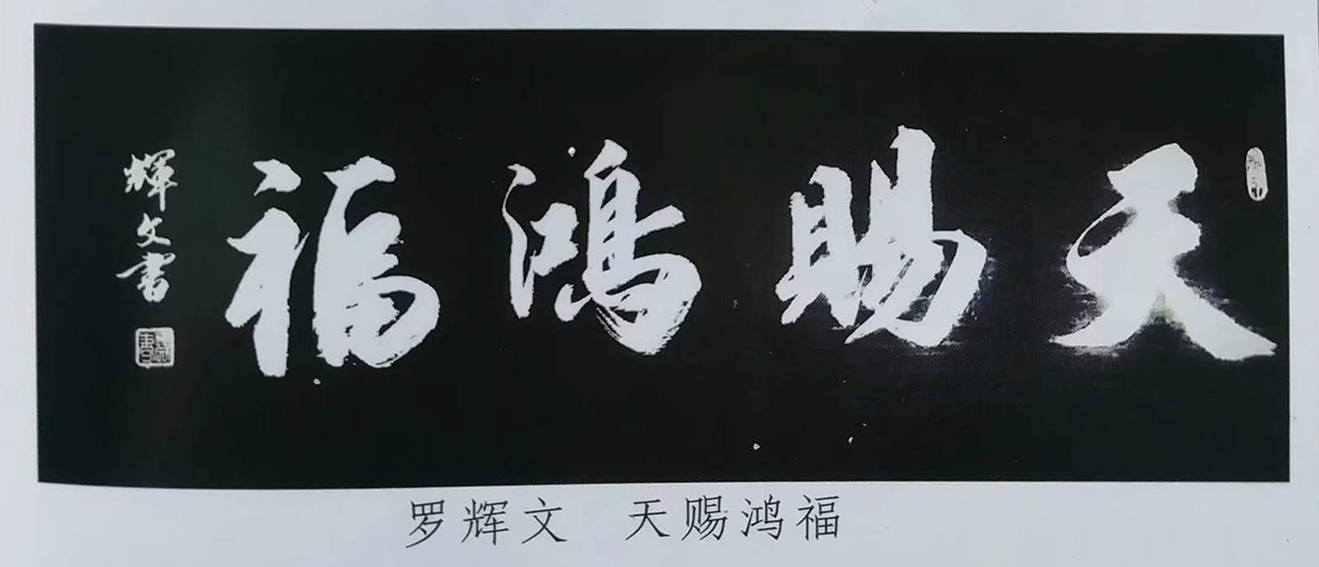 天賜鴻福
輝文書
罗辉文 天赐鸿福